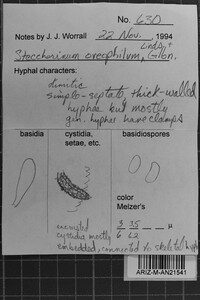 No. 630
Notes by J. J. Worrall 22 Nov., 1994
Lindtn.
Steccherinum oreophilum, Gilbn.
Hyphal characters:
dimitic
simple-septate, thick-walled
hyphae but mostly
gen. hyphae have clamps
basidia
cystidia, setae, etc.
basidiospores
color
Melzer's
encrusted
cystidia mostly
embedded, connected to skeletal hyphae
μ
ARIZ-M-AN21541